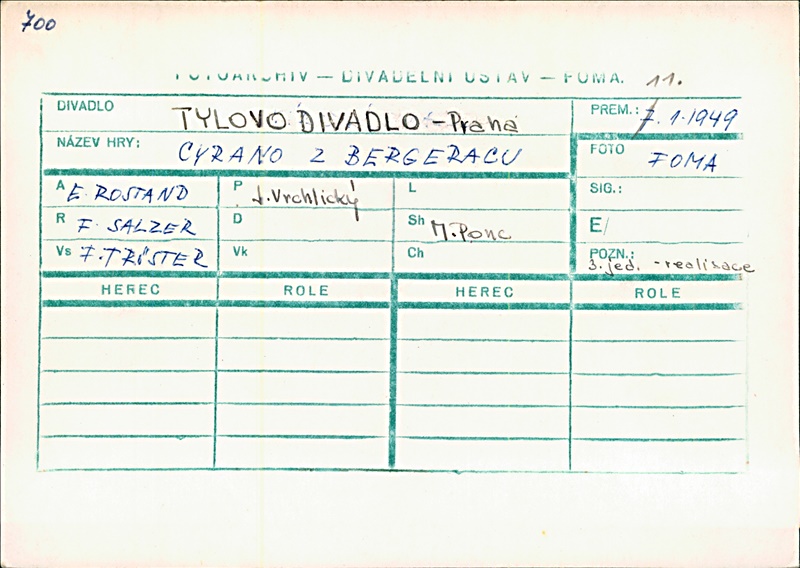 700
FOTOARCHIV — DIVADELNÍ ÚSTAV — FOMA.
11.
DIVADLO TYLOVO DIVADLO - Praha PREM.: 7.1.1949
NÁZEV HRY: CYRANO Z BERGERACU FOTO FOMA
A E. ROSTAND P J. Vrchlický L SIG.:
R F. SALZER D Sh M. Ponc E/
Vs F. TRÖSTER Vk Ch POZN.: 3. jed. - realisace
HEREC ROLE HEREC ROLE